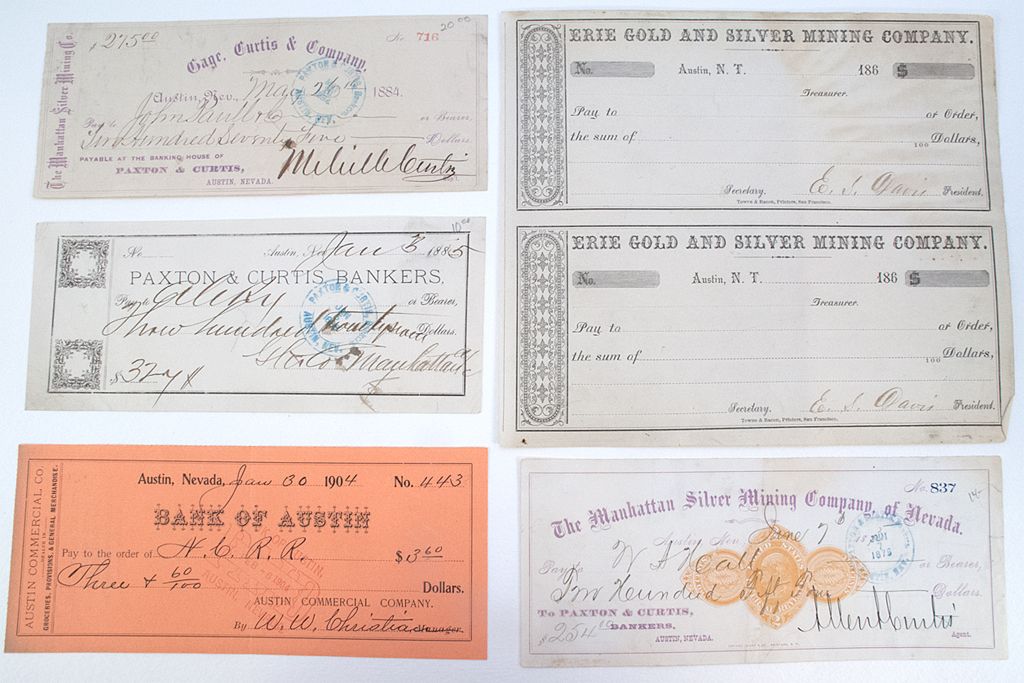 The Manhattan Silver Mining Co.
$275 00
No. 716
20 00
Gage, Curtis & Company,
Austin, Nev., May 26th 1884.
Pay to John Paull or Bearer,
Two Hundred Seventy Five Dollars.
PAYABLE AT THE BANKING HOUSE OF
PAXTON & CURTIS,
AUSTIN, NEVADA.
Melville Curtis
PAXTON & CURTIS
10 00
No. Austin, Nev. Jan 3 1885
PAXTON & CURTIS, BANKERS,
Pay to or Bearer,
Three hundred twenty seven Dollars.
$327
Manhattan
PAXTON & CURTIS
AUSTIN, NEV.
AUSTIN COMMERCIAL CO.
DEALER IN
GROCERIES, PROVISIONS, & GENERAL MERCHANDISE.
Austin, Nevada, Jan 30 1904 No. 443
BANK OF AUSTIN
Pay to the order of N. C. R. R. $3 60
Three + 60/100 Dollars.
AUSTIN COMMERCIAL COMPANY.
By W. W. Christian Manager
ERIE GOLD AND SILVER MINING COMPANY.
No. Austin, N. T. 186 $
Treasurer.
Pay to or Order,
the sum of 100 Dollars,
Secretary. E. S. Davis President.
Towne & Bacon, Printers, San Francisco.
ERIE GOLD AND SILVER MINING COMPANY.
No. Austin, N. T. 186 $
Treasurer.
Pay to or Order,
the sum of 100 Dollars,
Secretary. E. S. Davis President.
Towne & Bacon, Printers, San Francisco.
No. 837
14-
The Manhattan Silver Mining Company, of Nevada.
Austin Nev. June 7th
Pay to W A Hall or Bearer,
Two Hundred Fifty Four Dollars.
To PAXTON & CURTIS,
BANKERS,
AUSTIN, NEVADA.
$254 00
Allen A Curtis
Agent.